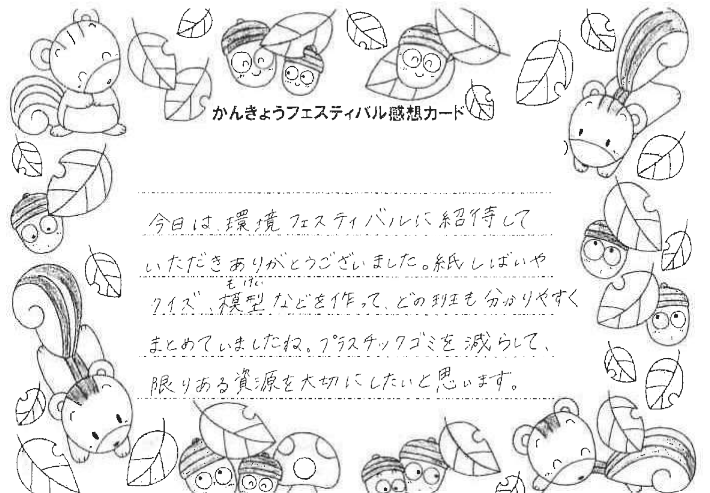 かんきょうフェスティバル感想カード
今日は、環境フェスティバルに紹待して
いただきありがとうございました。紙しばいや
クイズ、模型などを作って、どの班も分かりやすく
もけい
まとめていましたね。プラスチックゴミを減らして、
限りある資源を大切にしたいと思います。